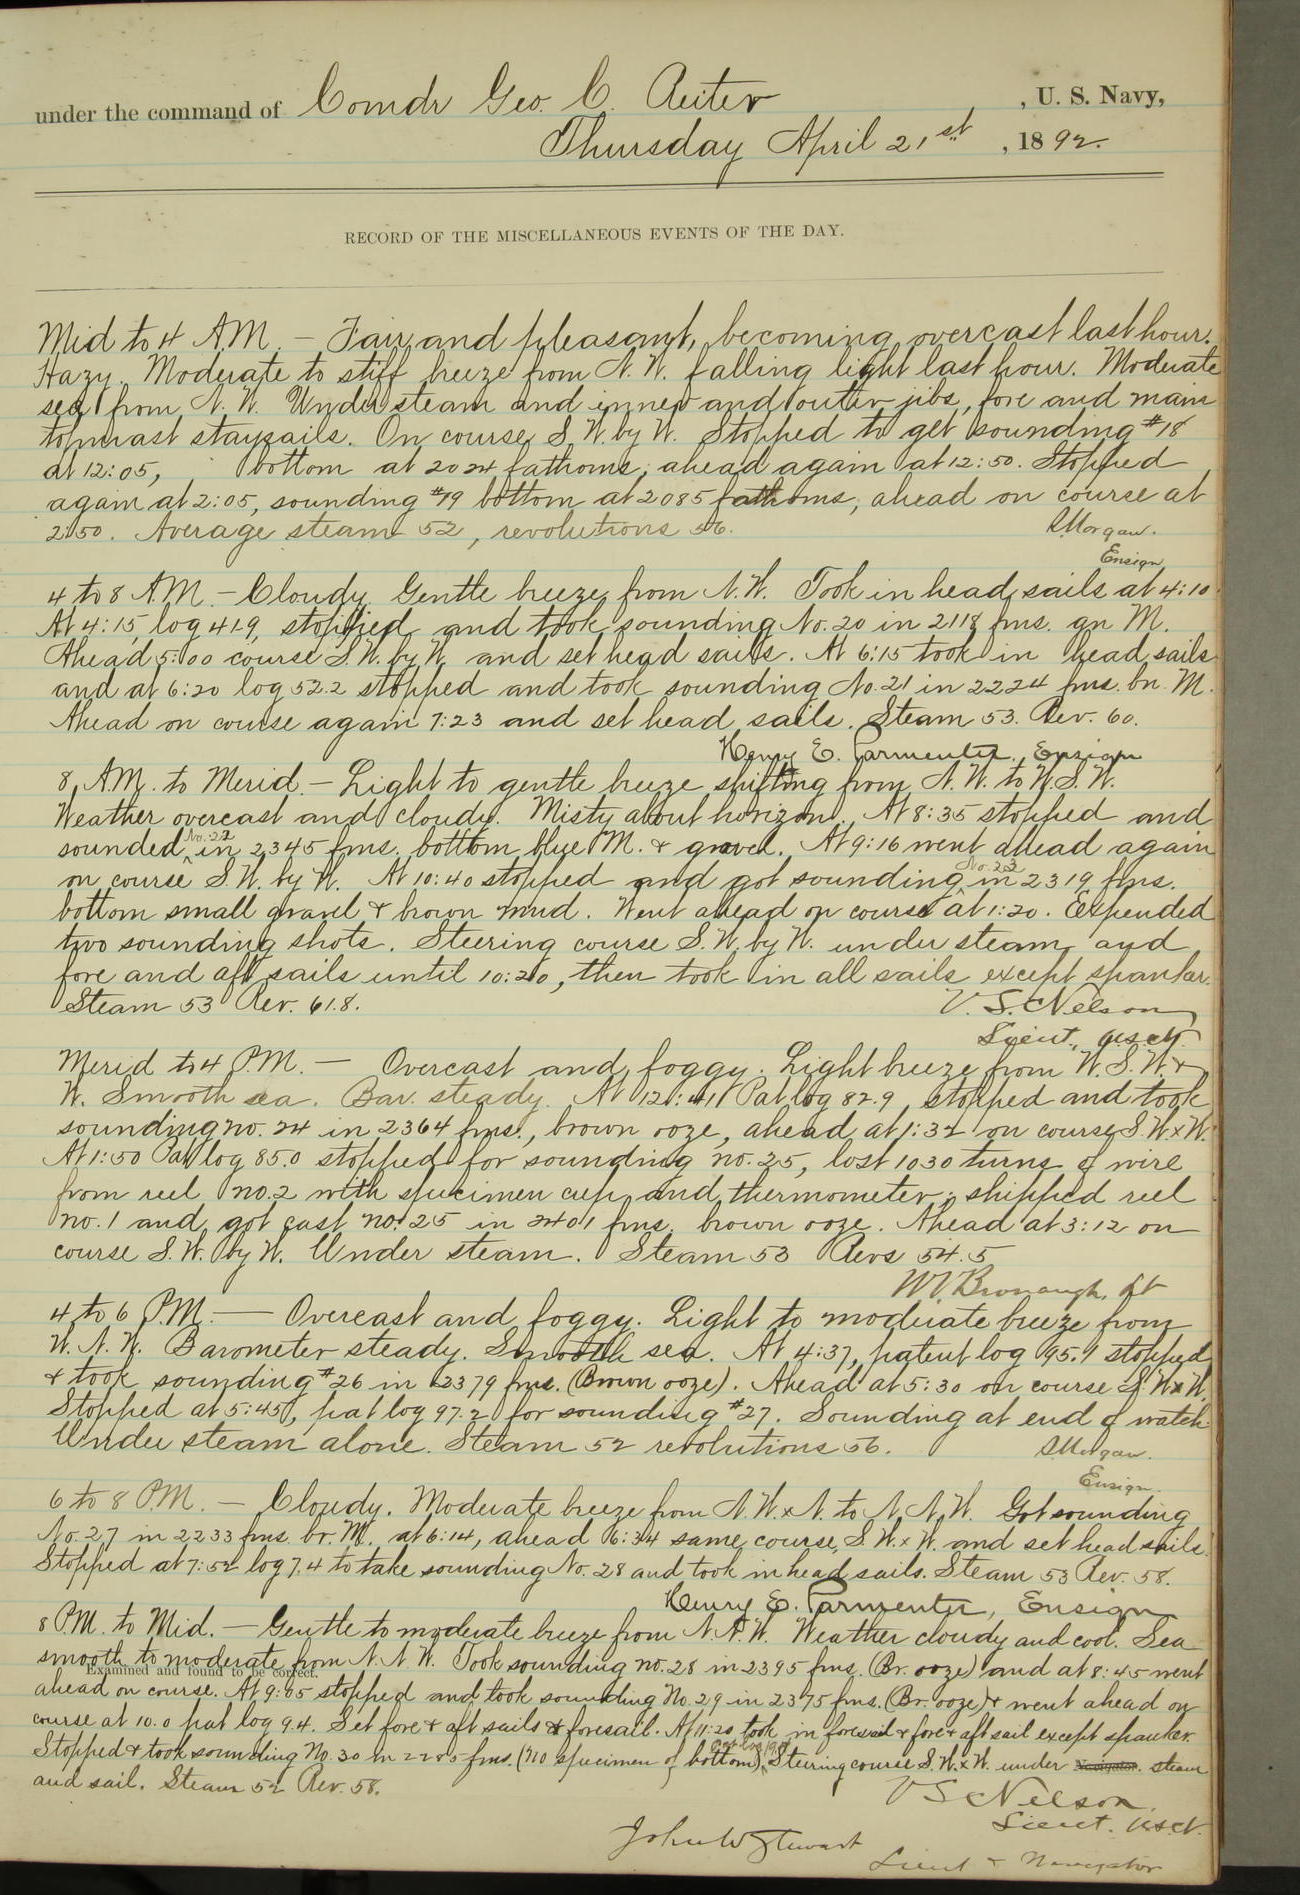 under the command of Comdr Geo. C. Reiter , U. S. Navy,
Thursday April 21st , 1892.
RECORD OF THE MISCELLANEOUS EVENTS OF THE DAY.
Mid to 4 A.M. — Fair and pleasant, becoming overcast last hour.
Hazy. Moderate to stiff breeze from N.W. falling light last hour. Moderate
sea from N.W. Under steam and inner and outer jibs, fore and main
topmast staysails. On course S.W. by W. Stopped to get sounding #18
at 12:05, bottom at 2024 fathoms, ahead again at 12:50. Stopped
again at 2:05, sounding #19 bottom at 2085 fathoms, ahead on course at
2:50. Average steam 52, revolutions 56.
Morgan.
Ensign
4 to 8 A.M. — Cloudy. Gentle breeze from N.W. Took in head sails at 4:10
At 4:15, log 41.9, stopped and took sounding No. 20 in 2118 fms. gn M.
Ahead 5:00 course S.W. by W. and set head sails. At 6:15 took in head sails
and at 6:20 log 52.2 stopped and took sounding No. 21 in 2224 fms. bn. M.
Ahead on course again 7:23 and set head sails. Steam 53. Rev. 60.
Henry E. Parmenter, Ensign
8 A.M. to Merid. — Light to gentle breeze shifting from N.W. to W.S.W.
Weather overcast and cloudy. Misty about horizon. At 8:35 stopped and
sounded No. 22 in 2345 fms. bottom blue M. & gravel. At 9:16 went ahead again
on course S.W. by W. At 10:40 stopped and got sounding No. 23 in 2319 fms.
bottom small gravel & brown mud. Went ahead on course at 1:20. Expended
two sounding shots. Steering course S.W. by W. under steam and
fore and aft sails until 10:20, then took in all sails except spanker.
Steam 53 Rev. 61.8.
V. S. Nelson
Lieut., U.S.N.
Merid to 4 P.M. — Overcast and foggy. Light breeze from W.S.W. &
W. Smooth sea. Bar. steady. At 12:41 Pat log 82.9, stopped and took
sounding no. 24 in 2364 fms., brown ooze, ahead at 1:32 on course S.W.xW.
At 1:50 Pat log 85.0 stopped for sounding no. 25, lost 1030 turns of wire
from reel no. 2 with specimen cup and thermometer; shipped reel
no. 1 and got cast no. 25 in 2401 fms. brown ooze. Ahead at 3:12 on
course S.W. by W. Under steam. Steam 53 Revs 54.5
W.V. Bronaugh, Lt
4 to 6 P.M. — Overcast and foggy. Light to moderate breeze from
W.N.W. Barometer steady. Smooth sea. At 4:37, patent log 95.1 stopped
& took sounding #26 in 2379 fms. (Brown ooze). Ahead at 5:30 on course S.WxW.
Stopped at 5:45, pat log 97.2 for sounding #27. Sounding at end of watch.
Under steam alone. Steam 52 revolutions 56.
Morgan.
Ensign.
6 to 8 P.M. — Cloudy. Moderate breeze from N.W.xN. to N.N.W. Got sounding
No. 27 in 2233 fms. br. M. at 6:14, ahead 6:34 same course, S.W.xW. and set head sails.
Stopped at 7:52 log 7.4 to take sounding No. 28 and took in head sails. Steam 53 Rev. 58.
Henry E. Parmenter, Ensign
8 P.M. to Mid. — Gentle to moderate breeze from N.N.W. Weather cloudy and cool. Sea
smooth to moderate from N.N.W. Took sounding no. 28 in 2395 fms. (Br. ooze) and at 8:45 went
Examined and found to be correct.
ahead on course. At 9:05 stopped and took sounding No. 29 in 2375 fms. (Br. ooze) & went ahead on
course at 10.0 pat log 9.4. Set fore & aft sails & foresail. At 11:20 took in foresail & fore & aft sail except spanker.
Stopped & took sounding No. 30 in fms. (no specimen of bottom). Steering course S.W.xW. under Navigator. steam
and sail. Steam 52 Rev. 58.
V S Nelson,
Lieut. U.S.N.
John W Stewart
Lieut & Navigator